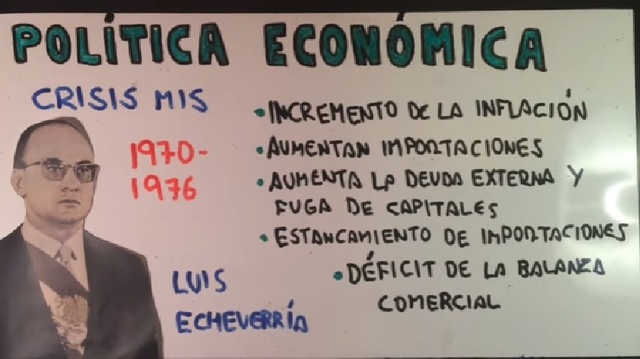 POLÍTICA ECONÓMICA
CRISIS MIS
1970-
1976
LUIS
ECHEVERRÍA
• INCREMENTO DE LA INFLACIÓN
• AUMENTAN IMPORTACIONES
• AUMENTA LA DEUDA EXTERNA Y
FUGA DE CAPITALES
• ESTANCAMIENTO DE IMPORTACIONES
• DÉFICIT DE LA BALANZA
COMERCIAL